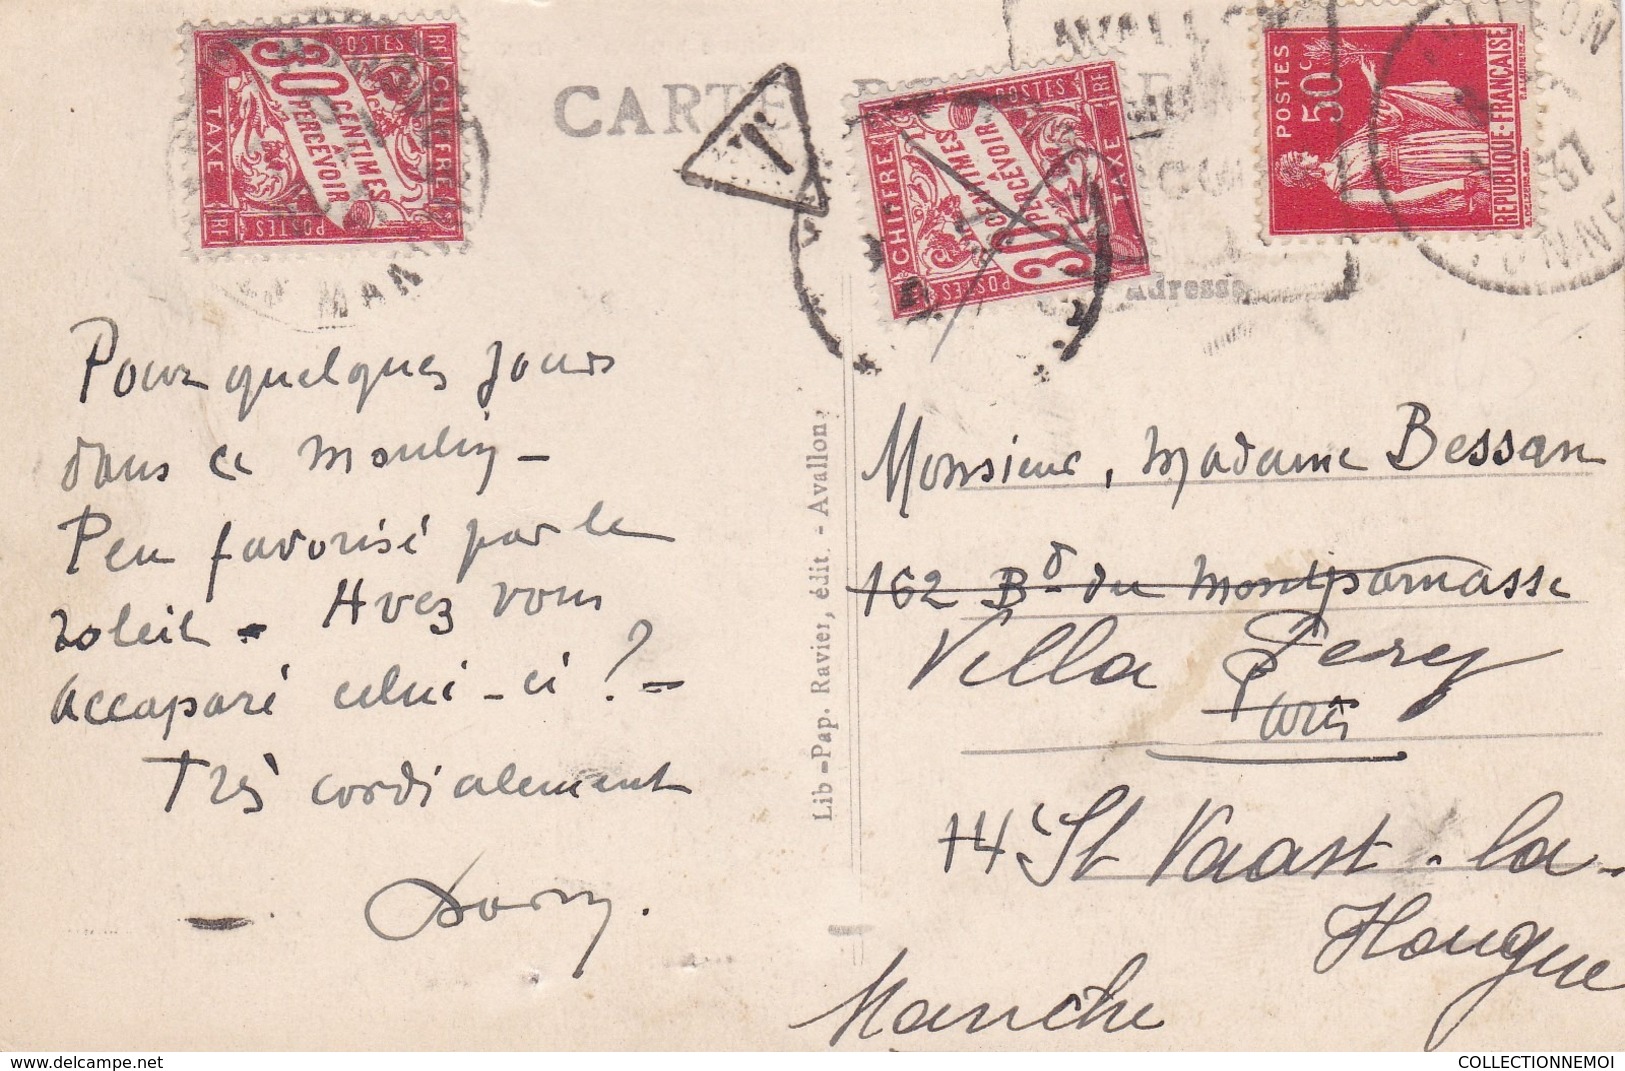 CARTE
POSTES
RF
CHIFFRE
TAXE
30
CENTIMES
A PERCEVOIR
RF
POSTES
T
POSTES
RF
CHIFFRE
TAXE
30
CENTIMES
A PERCEVOIR
POSTES
POSTES
50c
REPUBLIQUE-FRANÇAISE
37
YONNE
MANCHE
Adresse
Pour quelques jours
dans ce moulin -
Peu favorisé par le
soleil - Avez vous
accaparé celui-ci ? -
Très cordialement
Lib-Pap. Ravier, édit. - Avallon
Monsieur, Madame Bessan
162 Bd du Montparnasse
Villa
Paris
14e St Vaast-la-
Hougue
Manche
COLLECTIONNEMOI